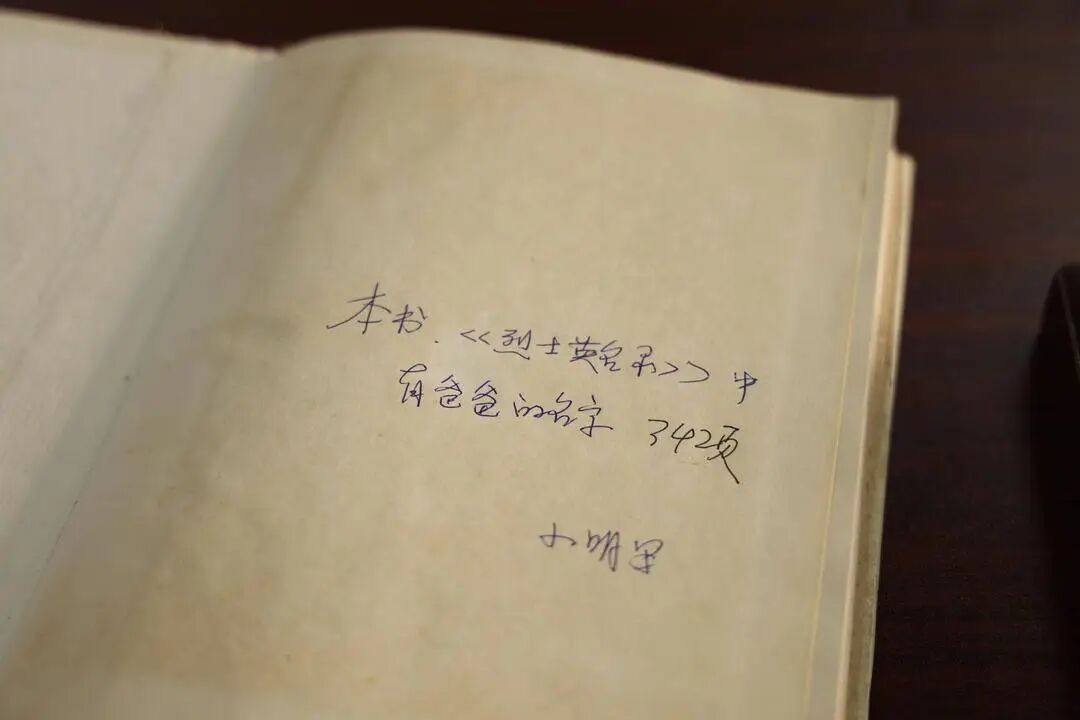 本书.《烈士英名录》中
有爸爸的名字 342页
小明